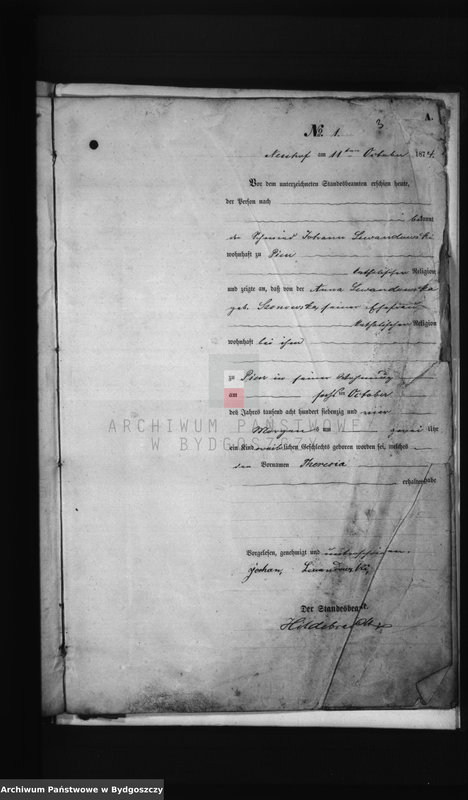 A.
3
№ 1.
Neuhof am 11ten October 1874.
Vor dem unterzeichneten Standesbeamten erschien heute,
der Person nach
bekannt
der Schmied Johann Lewandowski
wohnhaft zu Pien
katholischer Religion
und zeigte an, daß von der Anna Lewandowska
geb. seiner Ehefrau
katholischen Religion
wohnhaft bei ihm
zu Pien in seiner Wohnung
am October
des Jahres tausend acht hundert siebenzig und vier
Morgens um zwei Uhr
ein Kind weiblichen Geschlechts geboren worden sei, welches
den Vornamen Theresia
erhalten habe
Vorgelesen, genehmigt und unterschrieben.
Johan Lewandowski
Der Standesbeamte.
Hildebrandt
ARCHIWUM PAŃSTWOWE
W BYDGOSZCZY
Archiwum Państwowe w Bydgoszczy